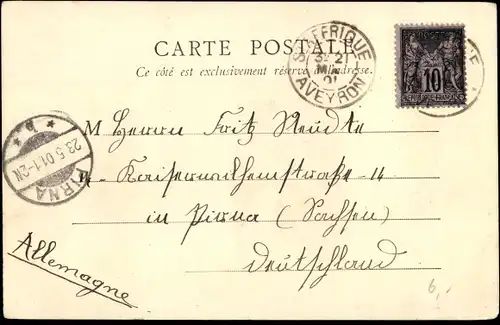 CARTE POSTALE
Ce côté est exclusivement réservé à l'adresse.
ST AFFRIQUE
3E 21
MAI
01
AVEYRON
10
PIRNA
23.5.01.1-2N
M Herrn Fritz
Kaiserwilhelmstraße 14
in Pirna (Sachsen)
Deutschland
Allemagne
6,-